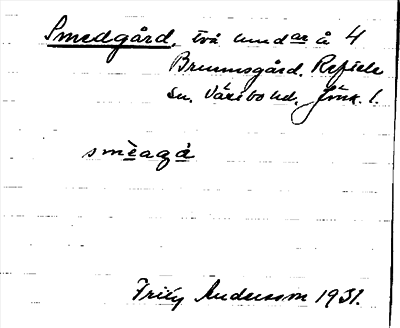 Smedgård, två und ar å 4
Brunnsgård. Reftele
sn. Västbo hd. Jönk. l.
smèagá
Fritz Andersson 1931.